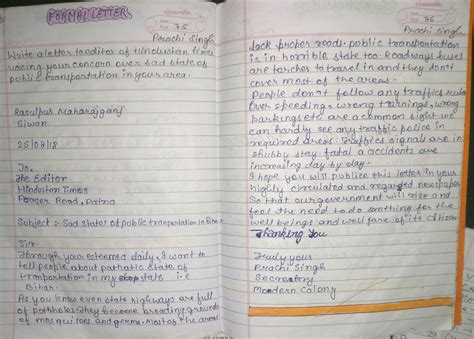 FORMAL LETTER
classmate
75
Prachi Singh
Write a letter to editor of Hindustan times
voicing your concern over sad state of
public transportation in your area.
Rasulpur Maharajganj
Siwan
25/03/18
To,
The Editor
Hindustan Times
Road, Patna
Subject :- Sad state of public tranportation in Bihar
Sir
Through your esteemed daily, I want to
tell people about pathatic state of
tranportation in my state i.e
Bihar.
As you know even state highways are full
of pottholes. They become broading ground
of mosquitoes and germs. Most of the areas
classmate
76
Prachi Singh
lack proper roads. public transportation
is in horrible state too. Roadways buses
are torcher to travel in and they don't
cover most of the areas.
People don't follow any traffics rules
Over speeding, wrong turnings, wrong
parkings etc are a common sight. we
can hardly see any traffic police in
required areas. Traffics signals are in
shubby stay. fatal a accidents are
increasing day by day.
I hope you will publice this letter in your
highly circulated and newspaper
So that our government will rise and
feel the need to do somthing for the
well beings and well fare of its citizens
Thanking You
Truly your
Prachi Singh
Secreatory
Modern Colony